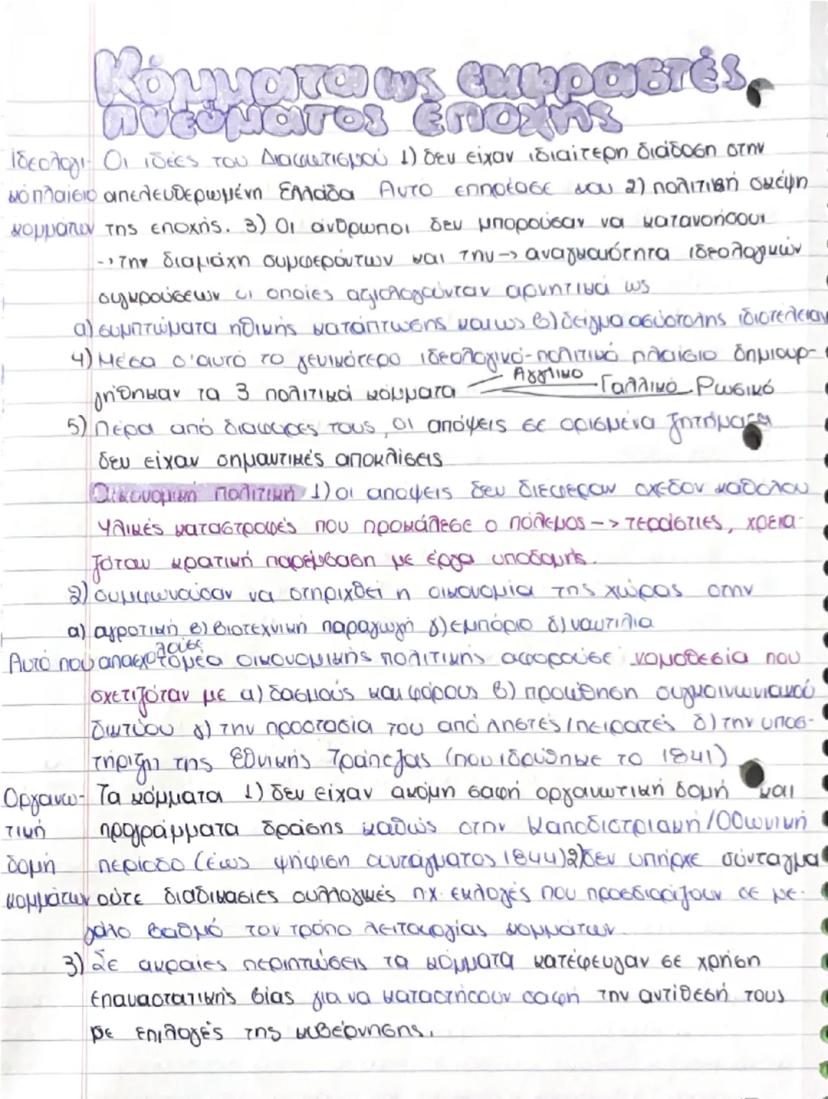 Κόμματα ως εκφραστές
πνεύματος εποχής
Ιδεολογι- Οι ιδέες του Διαφωτισμού 1) δεν είχαν ιδιαίτερη διάδοση στην
κό πλαίσιο απελευθερωμένη Ελλάδα Αυτό επηρέασε και 2) πολιτική σκέψη
κομμάτων της εποχής. 3) Οι άνθρωποι δεν μπορούσαν να κατανοήσουν
→ την διαμάχη συμφερόντων και την → αναγκαιότητα ιδεολογικών
συγκρούσεων οι οποίες αξιολογούνταν αρνητικά ως
α) συμπτώματα ηθικής κατάπτωσης και ως β) δείγμα ασύστολης ιδιοτέλειαν
4) Μέσα σ'αυτό το γενικότερο ιδεολογικό-πολιτικό πλαίσιο δημιουρ-
γήθηκαν τα 3 πολιτικά κόμματα Αγγλικό Γαλλικό Ρωσικό
5) Πέρα από διαφορές τους, οι απόψεις σε ορισμένα ζητήματα
δεν είχαν σημαντικές αποκλίσεις
Οικονομική πολιτική 1) οι απόψεις δεν διέφεραν σχεδόν καθόλου
Υλικές καταστροφές που προκάλεσε ο πόλεμος --> τεράστιες, χρεια-
ζόταν κρατική παρέμβαση με έργα υποδομής.
2) συμφωνούσαν να στηριχθεί η οικονομία της χώρας στην
α) αγροτική β) βιοτεχνική παραγωγή γ) εμπόριο δ) ναυτιλία
Αυτό που απασχολούσε τομέα οικονομικής πολιτικής αφορούσε νομοθεσία που
σχετιζόταν με α) δασμούς και φόρους β) προώθηση συγκοινωνιακού
δικτύου γ) την προστασία του από ληστές/πειρατές δ) την υποσ-
τήριξη της Εθνικής Τράπεζας (που ιδρύθηκε το 1841)
Οργανω- Τα κόμματα 1) δεν είχαν ακόμη σαφή οργανωτική δομή και
τική προγράμματα δράσης καθώς στην Καποδιστριακή/Οθωνική
δομή περίοδο (έως ψήφιση συντάγματος 1844) 2) δεν υπήρχε σύνταγμα
κομμάτων ούτε διαδικασίες συλλογικές πχ. εκλογές που προσδιορίζουν σε με-
γάλο βαθμό τον τρόπο λειτουργίας κομμάτων.
3) Σε ακραίες περιπτώσεις τα κόμματα κατέφευγαν σε χρήση
επαναστατικής βίας για να καταστήσουν σαφή την αντίθεσή τους
με επιλογές της κυβέρνησης.